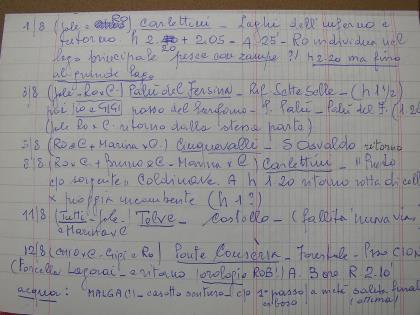 1/8 (Jole - RO) Carlettini - Laghi dell'inferno e
ritorno h 2.20 + 2.05 - 4.25 - Ro individua nel
lago principale pesce con zampe ?! h 2.20 ma fino
al grande lago
3/8 (Jole - Ro x C) Palù del Fersina - Rif Sette Selle - (h 1½)
poi io e GIGI passo del - Palù del F. (1.20
Jole Ro x C ritorno dalla stessa parte)
5/8 (Ro e C + Marina x C) Cinquevalli - S Osvaldo ritorno
8/8 (Ro x C + Bruno e C - Marina x C) Carlettini - "
c/o sorgente" Coldinave. A h 1.20 ritorno rotta di collo
x pioggia incombente (h 1?)
11/8 (Tutti - Jole - Marina x C) Tolvà - Castello - (fallita nuova via)
12/8 (CHIO x C - Gigi e Ro) Ponte Conseria - Forestale - P.sso CION
(Forcella Lagorai - e ritorno (orologio ROB!) A. 3 ore R 2.10'
acqua: MALGA (?) - casotto - c/o 1° passo a metà salita finale
(ottima!)